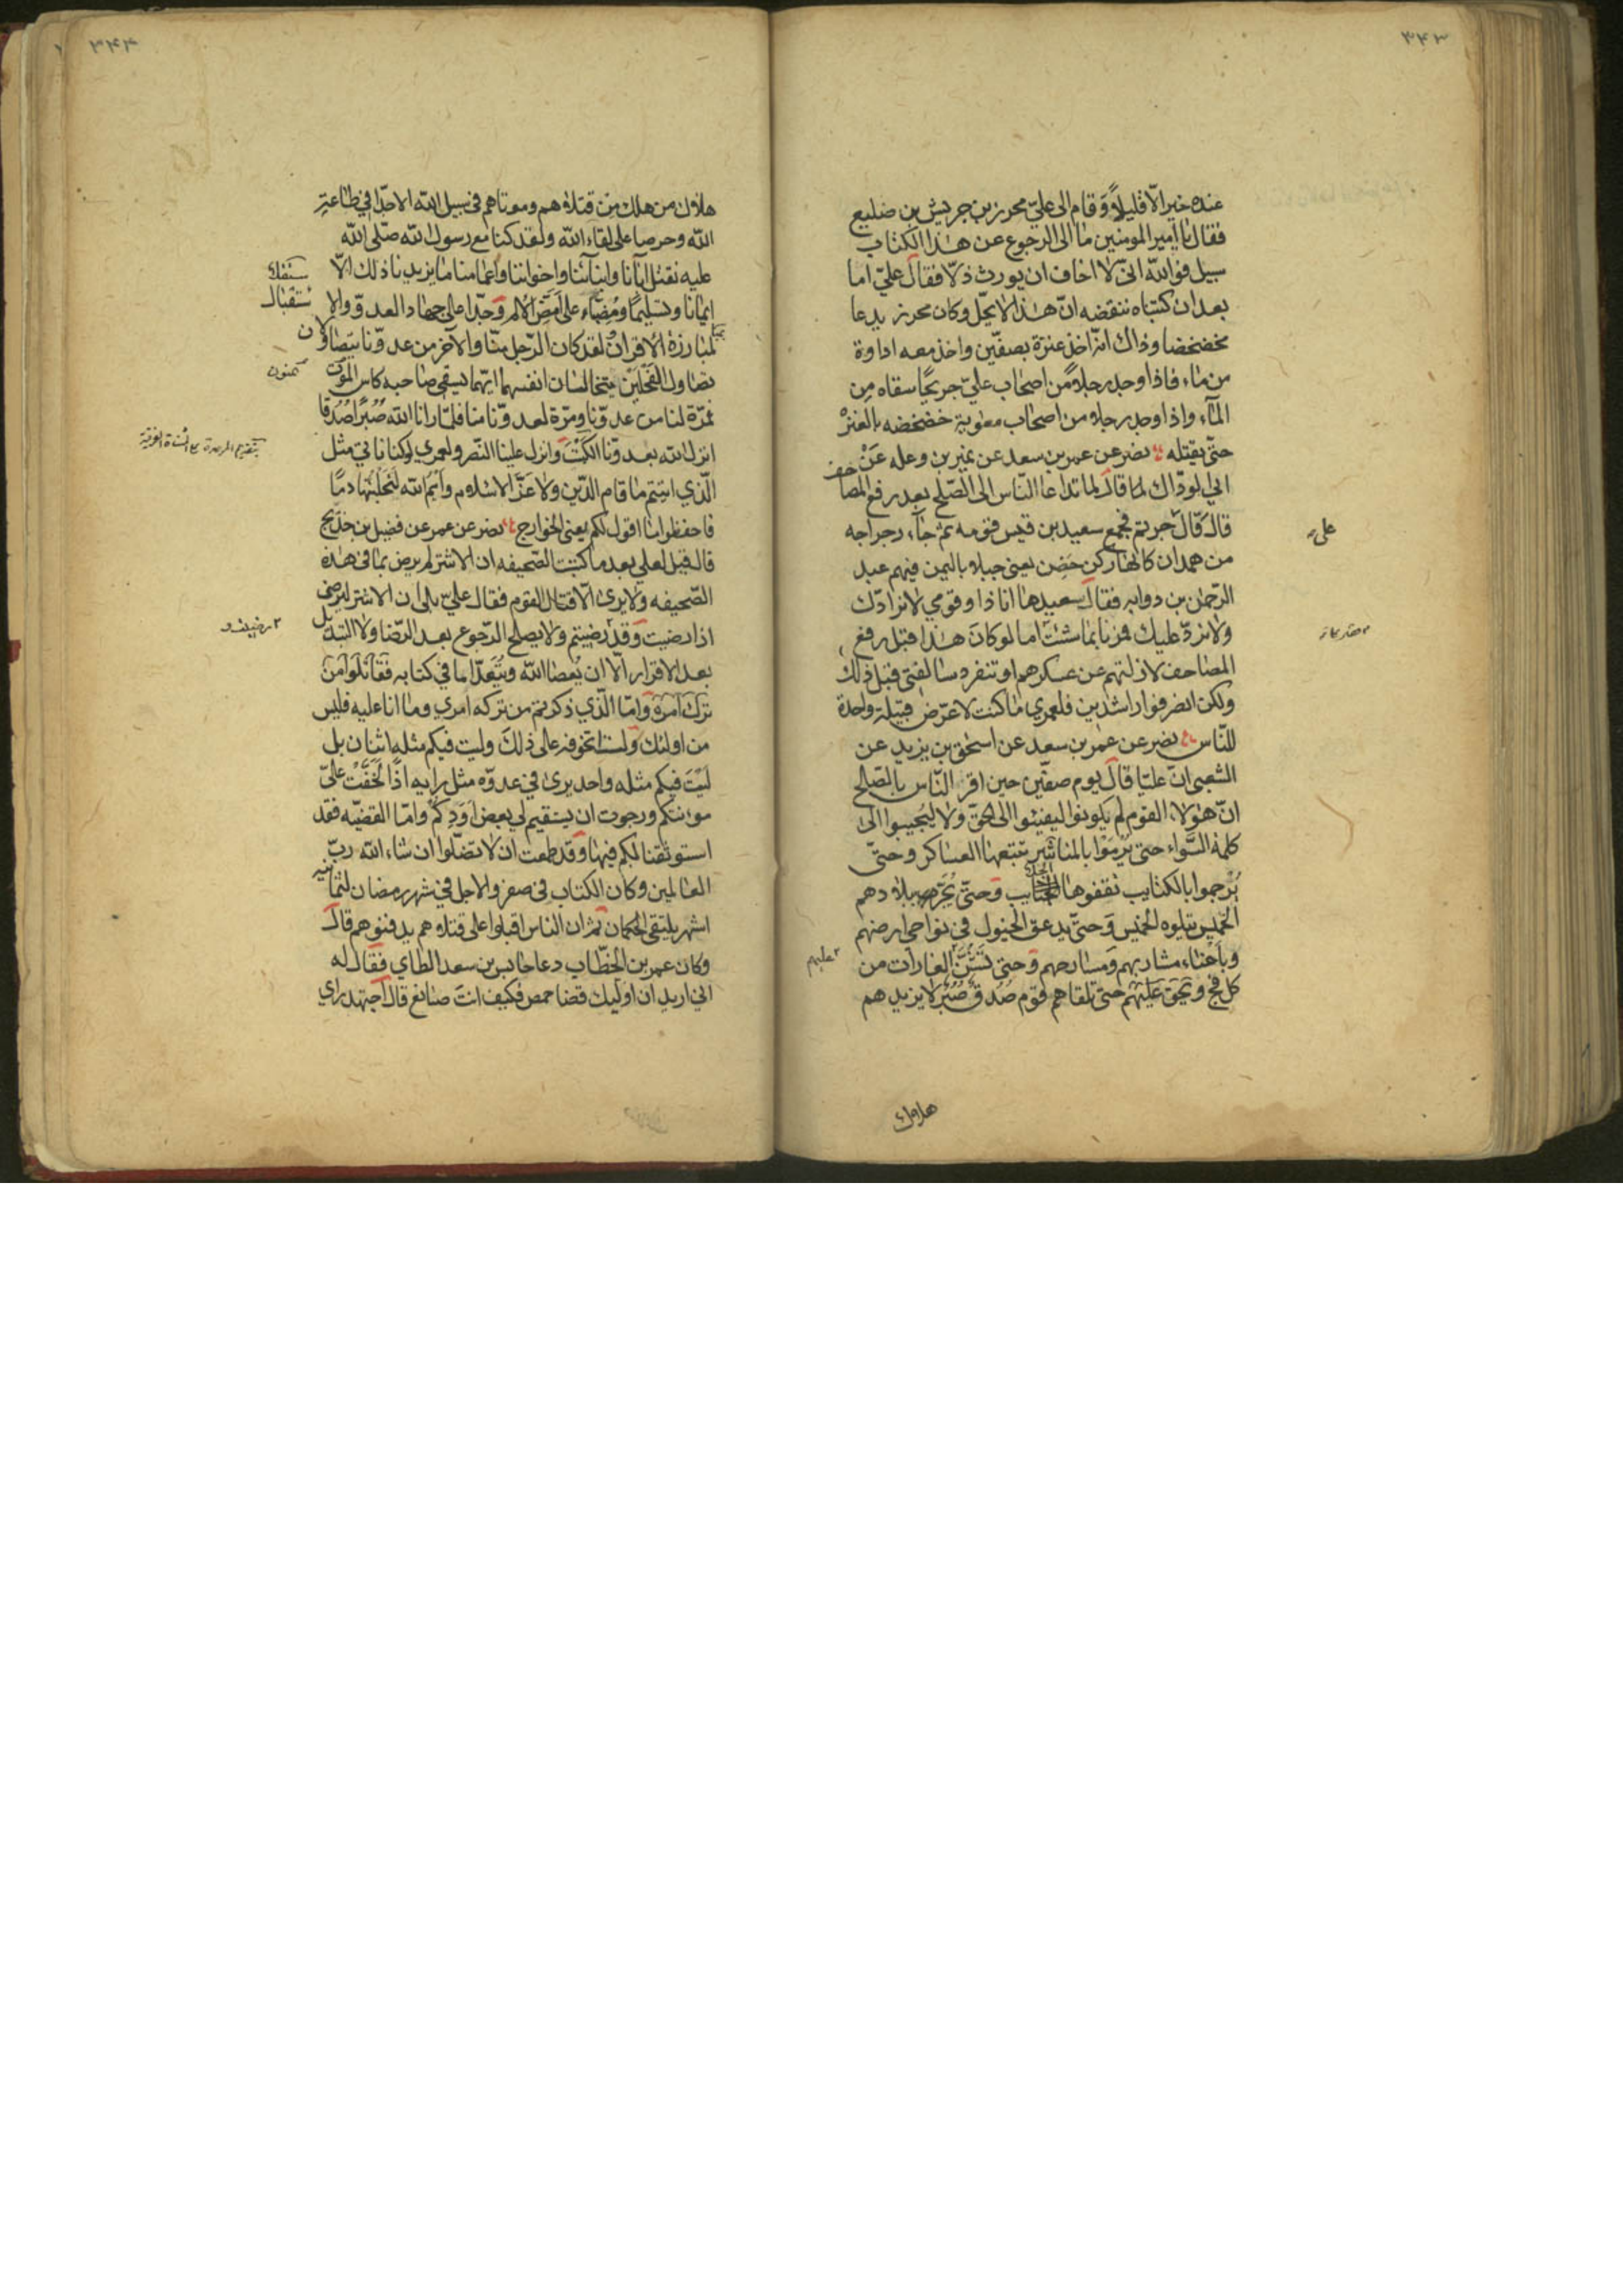 ٣٤٣
عنده خيرا الّا قليلاً وَقام الى عليّ محرز بن جريش بن ضليع
فقال يا امير المومنين ما الى الرجوع عن هذا الكتاب
سبيل فو الله انّي لا اخاف ان يورث ذلّا فقال عليّ اما
بعد ان كتبناه ننقضه انّ هذا لا يحلّ وكان محرز يدعا
مخضخضا وذاك انّه اخذ عنزة بصفّين واخذ معه اداوة
من ماء فاذا وجد رجلاً من اصحاب عليّ جريحًا سقاه مِن
المآء واذا وجد رجلا من اصحاب معوية خضخضه بالعنزْ
حتّى يقتله نصر عن عمر بن سعد عن نمير بن وعله عَنْ
ابي الودّاك لمّا قال لما تداعا النّاس الى الصّلح بعد رفع المصاحف
قال قال جريتم فجمع سعيد بن قيس قومه ثم جآء رجراجه
على
من همدان كانها ركن حَضِن يعني جبلا باليمن فيهم عبد
الرّحمن بن دوابه فقال سعيدها انا ذا وقومي لا نرادّك
ولا نردّ عليك فمرنا بما شئتَ اما لو كان هذا قبل رفع
المصاحف لازلتهم عن عسكرهم او تنفرد سالفتي قبل ذلك
ولكن انصرفوا راشدين فلعمري ما كنت لا عرّض قبيلة واحدة
للنّاس نصر عن عمر بن سعد عن اسحق بن يزيد عن
الشعبي انّ عليّا قال يوم صفّين حين اقر النّاس بالصّلح
انّ هؤلاء القوم لم يكونوا ليفيئوا الى الحقّ ولا ليُجيبوا الى
كلمة السَّواء حتى يُرمَوْا بالمناسر تتبعها العساكر وحتىّ
يُرجموا بالكتايب تقفوها الجلايب وَحتىّ يُجَرّ ببلادهم
الخميس يتلوه الخميس وَحتىّ يدعق الخيول في نواحي ارضهم
وباَحناء مشاربهم ومسارحهم وَحتى تُشنَّ الغارات من
عليهم
كل فج وَحتى تلقاهم قوم صُدقٌ صُبُرٌ لا يزيدهم
هلاك
٣٤٤
هلاك من هلك مِن قتلاهم وموتاهم في سبيل الله الا جدّا في طاعة
الله وحرصا على لقاء الله ولقد كنا مع رسول الله صلّى الله
عليه نقتل آبآنا وابنآئنا واخواننا واعمامنا ما يزيدنا ذلك الّا
ايمانا وتسليمًا ومُضيّاء على اَمَضّ الالم وَجدّا على جهاد العدوّ والا
ستقبال
لمبارزة الاقران لقد كان الرّجل منّا والآخر من عدوّنا يتصاولان
تصاول الفَحْلَين يتخالسان انفسهما ايّهما يسقي صاحبه كاس المَوْن
المنون
فمرّة لنا من عدوّنا ومرّة لعدوّنا منا فلمّا رانا الله صُبُرًا صُدُقا
انزل الله بعدوّنا الكَبْتَ وانزل علينا النّصر ولعمري لو كنا ناتي مثل
الّذي اتيتم ما قام الدّين ولا عَزَّ الاسلام وايْمُ الله لَتَحلُبُنّها دمًا
فاحفظوا ما اقول لكم يعني الخوارج نصر عن عمر عن فضيل بن خديج
قال قيل لعلي بعد ما كتبت الصّحيفه ان الاشتر لم يرض بما في هذه
الصّحيفه ولا يرى الّا قتال القوم فقال عليّ بلى ان الاشتر ليرضى
اذا رضيت وَقد رضيتم ولا يصلح الرّجوع بعد الرّضا ولا التبديل
رضيت و
بعد الاقرار الّا ان يُعصا الله ويُتعدّا ما في كتابه فَقاتلوا مَنْ
تركَ امرَه وَامّا الّذي ذكرتم من تركه امري وما انا عليه فليس
من اولئك وَلست اتخوفه على ذلك وليت فيكم مثله اثنان بل
لَيْتَ فيكم مثله واحد يرى في عدوّه مثل رايه اذًا لَخَفَّتْ علىّ
مونتكم ورجوت ان يستقيم لي بعض اوَدِكمْ وامّا القضيّه فقد
استوثقنا لكم فيها وَقد طمعت ان لا تضلّوا ان شاء الله ربّ
العالمين وكان الكتاب في صفر والاجل في شهر رمضان لثمانيه
اشهر يلتقي الحكمان ثمّ ان الناس اقبلوا على قتلاهم يدفنوهم قال
وكان عمر بن الخطّاب دعا حابس بن سعد الطاي فقال له
اني اريد ان اوليك قضا حمص فكيف انتَ صانع قال اجتهد راي